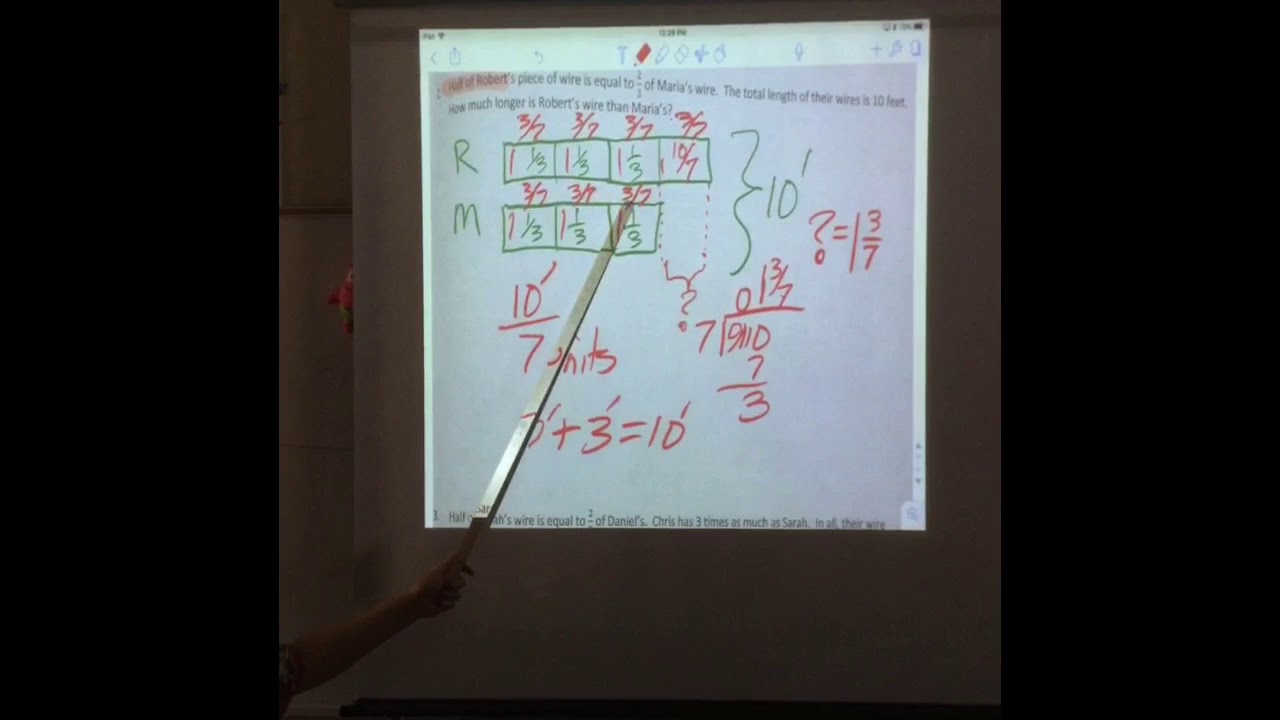 iPad 12:29 PM
Half of Robert's piece of wire is equal to 2/3 of Maria's wire. The total length of their wires is 10 feet.
How much longer is Robert's wire than Maria's?
3/7 3/7 3/7 3/7
R 1 1/3 1 1/3 1 1/3 10/7
3/7 3/7 3/7
M 1 1/3 1 1/3 1 1/3
10'
? = 1 3/7
10' / 7 units
?
0 1 3/7
7
10
7
3
+ 3' = 10'
3. Half of Sarah's wire is equal to 2/ of Daniel's. Chris has 3 times as much as Sarah. In all, their wire